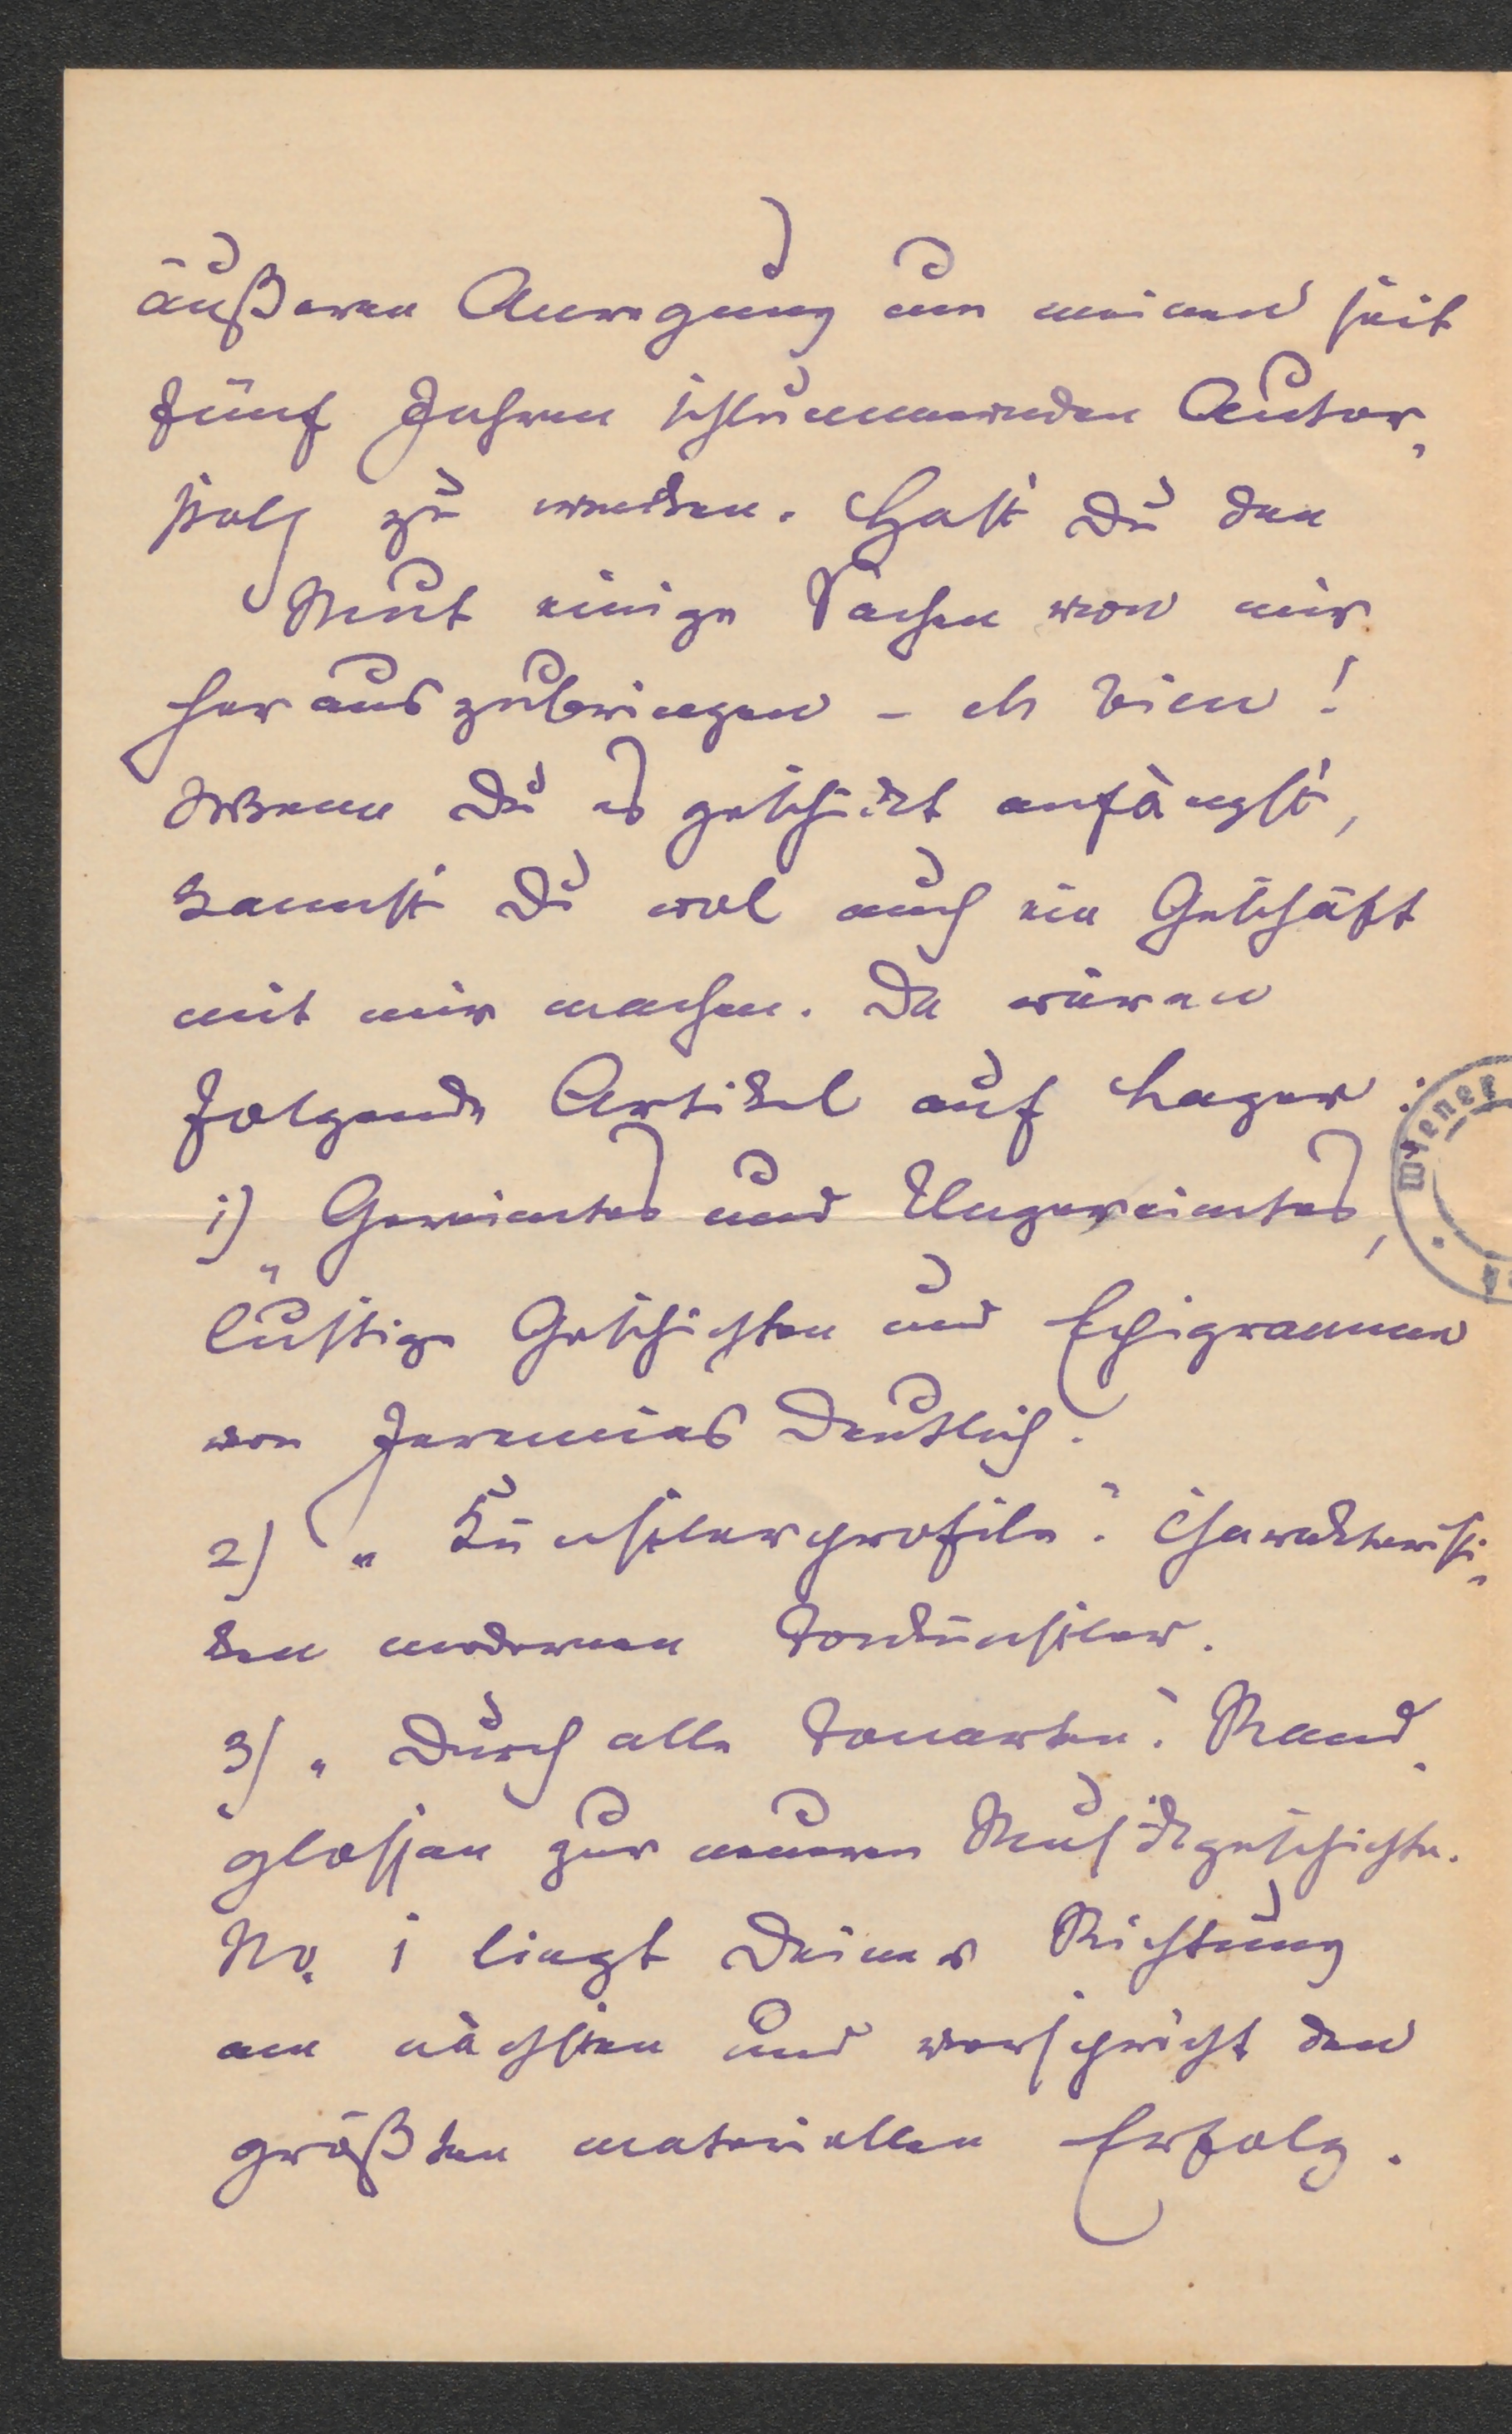 äußeren Anregung um meinen seit
fünf Jahren schlummernden Autor-
stolz zu wecken. Hast Du den
Mut einige Sachen von mir
herauszubringen – eh bien!
Wenn Du es geschickt anfängst,
kannst Du wol auch ein Geschäft
mit mir machen. Da wären
folgende Artikel auf Lager:
1) „Gereimtes und Ungereimtes,
lustige Geschichten und Epigramme
von Jeremias Deutlich.
2) „Künstlerprofile“. Charakteristi-
ken moderner Tonkünstler.
3) „Durch alle Tonarten“. Rand-
glossen zur neueren Musikgeschichte.
No. 1 liegt Deiner Richtung
am nächsten und verspricht den
größten materiellen Erfolg.
Wiener